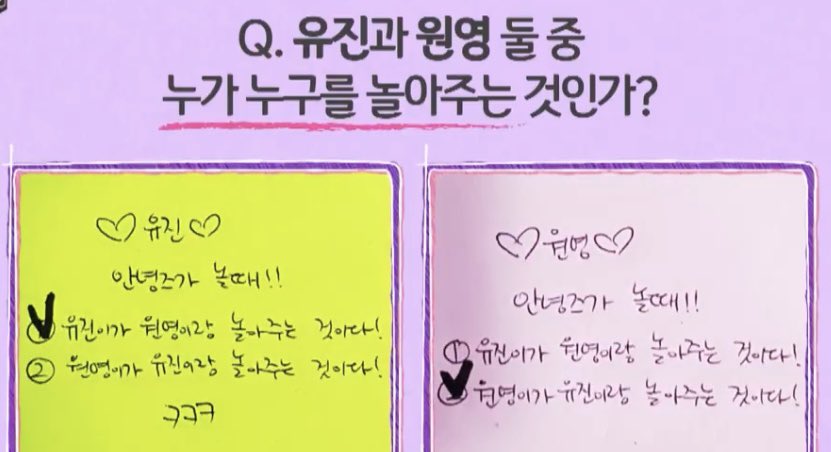 Q. 유진과 원영 둘 중
누가 누구를 놀아주는 것인가?
♡유진♡
안녕즈가 놀때!!
① 유진이가 원영이랑 놀아주는 것이다!
② 원영이가 유진이랑 놀아주는 것이다!
ㅋㅋㅋ
♡원영♡
안녕즈가 놀때!!
① 유진이가 원영이랑 놀아주는 것이다!
② 원영이가 유진이랑 놀아주는 것이다!